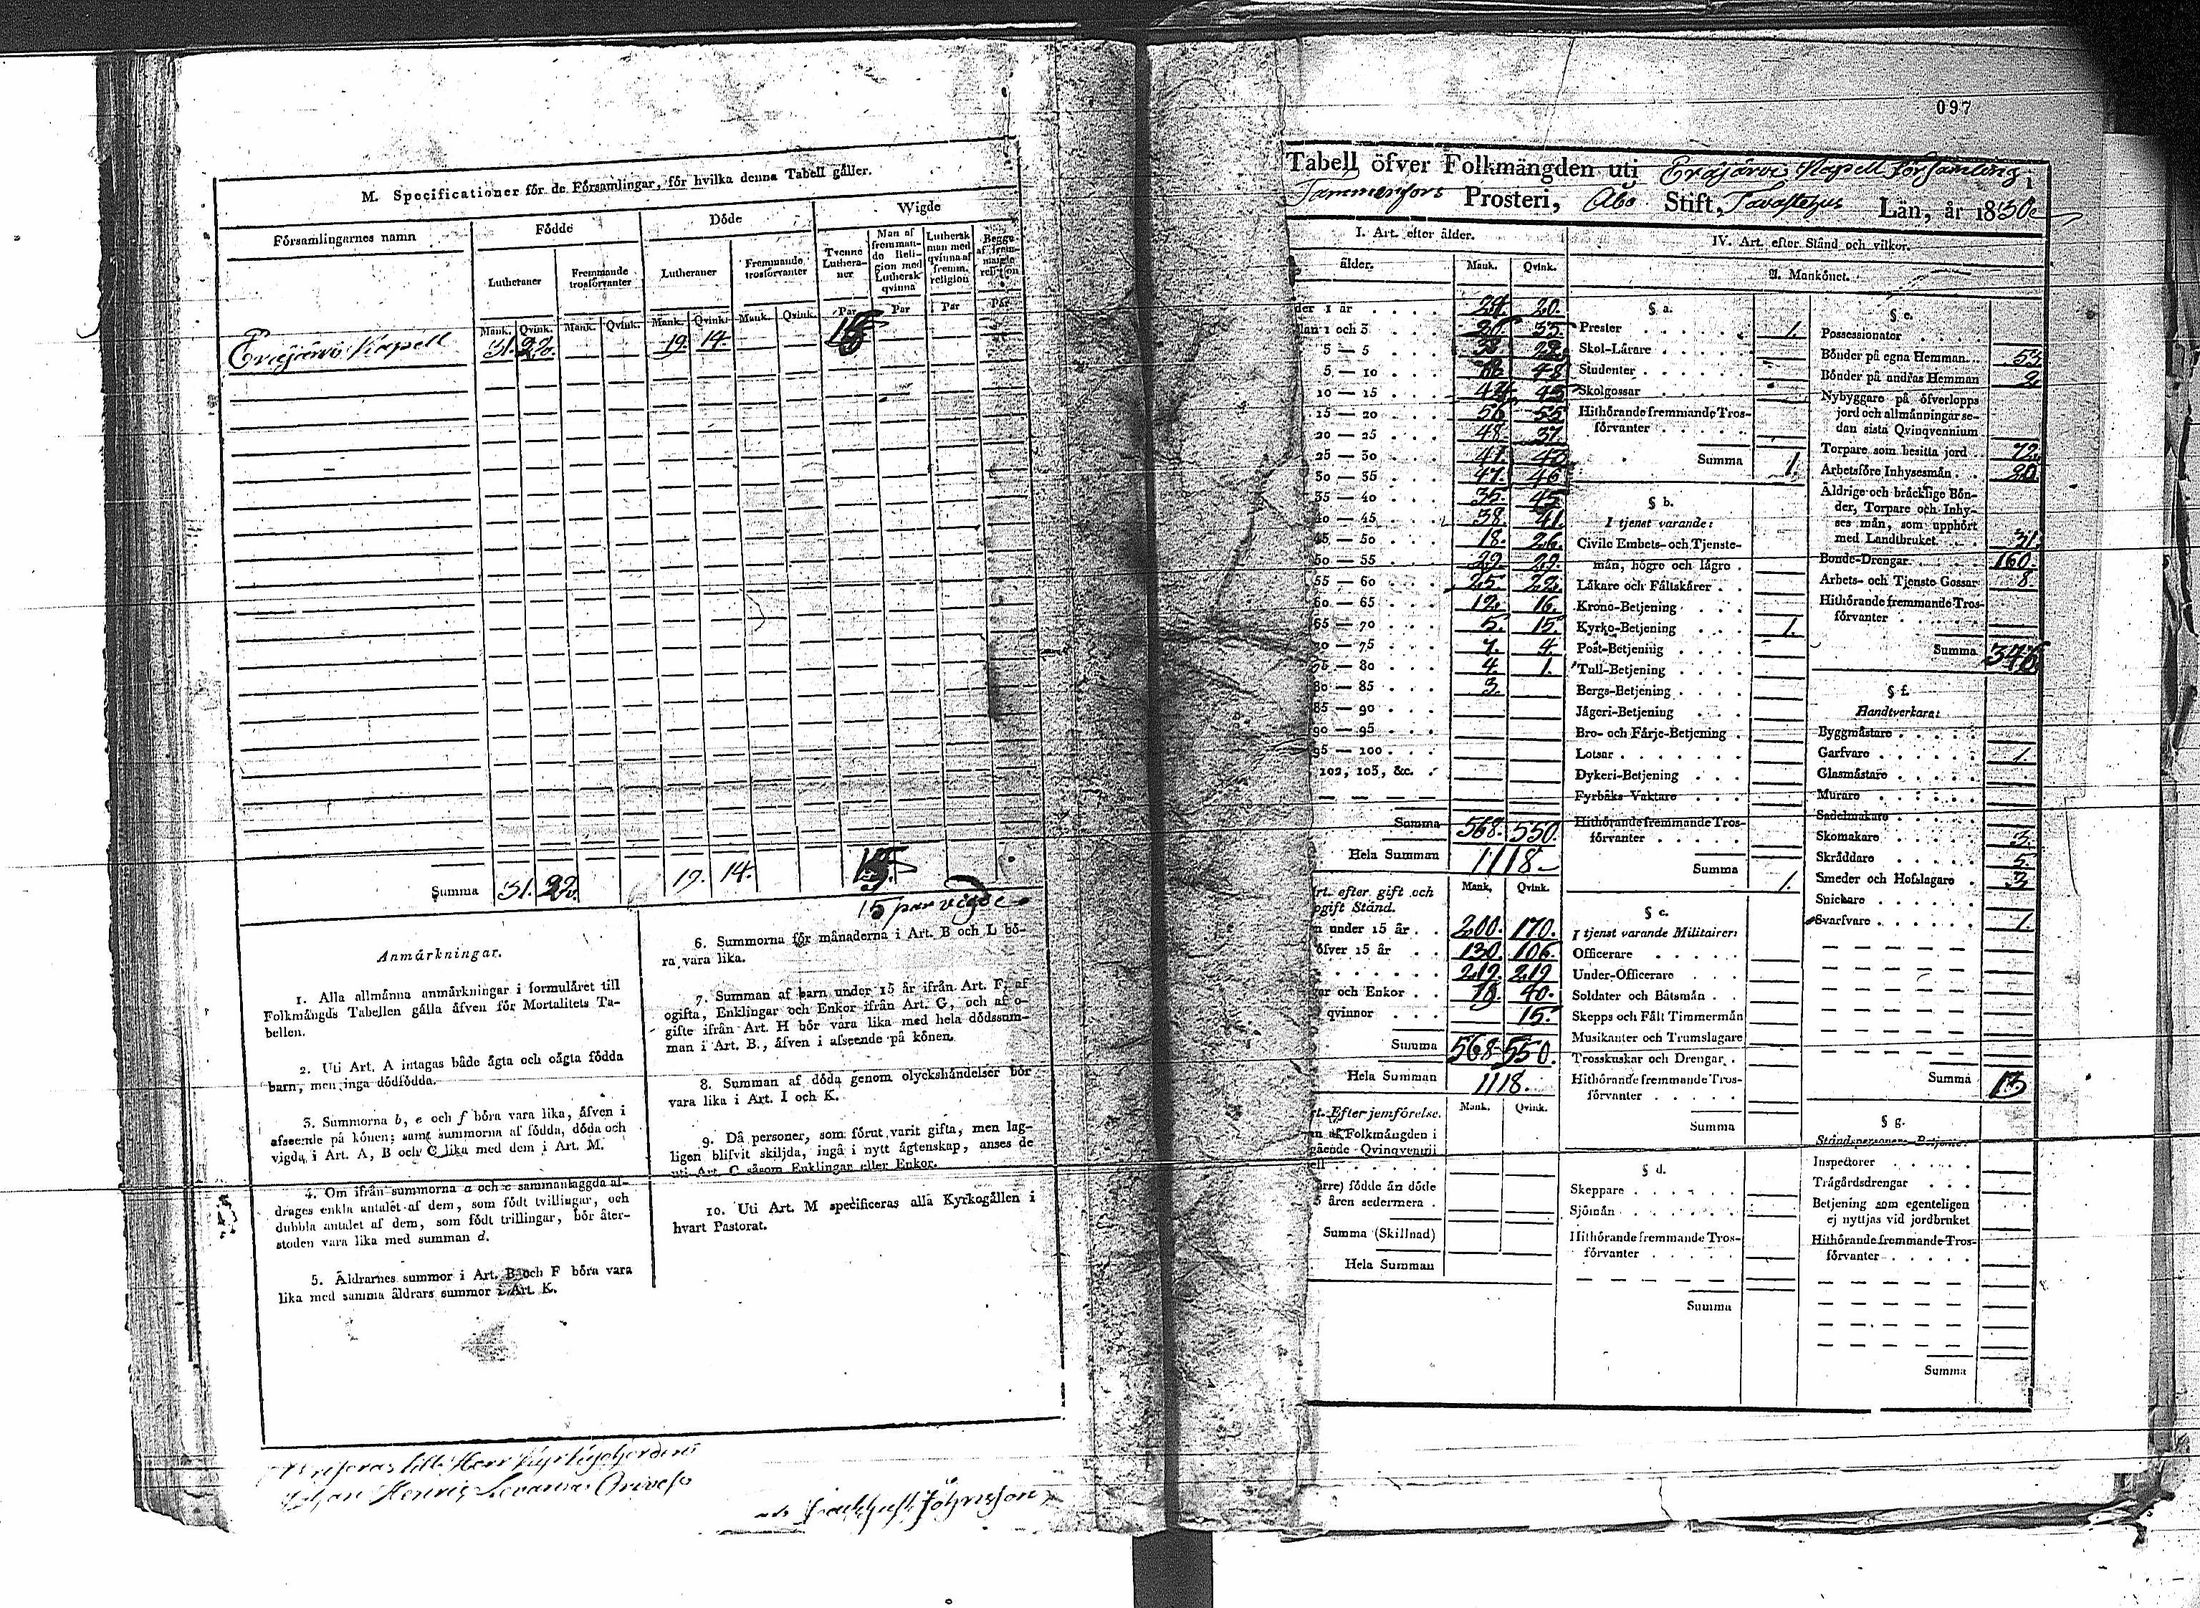 M. Specificationer för de Församlingar, för hvilka denna Tabell gäller.
Församlingarnes namn
Födde
Döde
Wigde
Lutheraner
Fremmande trosförvanter
Lutheraner
Fremmande trosförvanter
Tvenne Lutheraner
Man af fremmande Religion med Luthersk qvinna
Luthersk man med qvinna af fremm. religion
Begge af fremmande religion
Mank. Qvink. Mank. Qvink. Mank. Qvink. Mank. Qvink. Par Par Par Par
Eräjärvi Kapell 31. 22. 19. 14. 15
Summa 31. 22. 19. 14. 15
15 par vigde
Anmärkningar.
1. Alla allmänna anmärkningar i formuläret till
Folkmängds Tabellen gälla äfven för Mortalitets Ta-
bellen.
2. Uti Art. A intagas både ägta och oägta födda
barn, men inga dödfödda.
3. Summorna b, e och f böra vara lika, äfven i
afseende på könen; samt summorna af födda, döda och
vigda i Art. A, B och C lika med dem i Art. M.
4. Om ifrån summorna a och c sammanlaggda af-
drages enkla antalet af dem, som födt tvillingar, och
dubbla antalet af dem, som födt trillingar, bör åter-
stoden vara lika med summan d.
5. Äldrarnes summor i Art. B och F böra vara
lika med samma äldrars summor i Art. K.
6. Summorna för månaderna i Art. B och L bö-
ra vara lika.
7. Summan af barn under 15 år ifrån Art. F, af
ogifta, Enklingar och Enkor ifrån Art. G, och af o-
gifte ifrån Art. H bör vara lika med hela dödssum-
man i Art. B., äfven i afseende på könen.
8. Summan af döda genom olyckshändelser bör
vara lika i Art. I och K.
9. Då personer, som förut varit gifta, men lag-
ligen blifvit skiljda, ingå i nytt ägtenskap, anses de
uti Art. C såsom Enklingar eller Enkor.
10. Uti Art. M specificeras alla Kyrkogällen i
hvart Pastorat.
097
Tabell öfver Folkmängden uti Eräjärvi Kapell Församling i
Tammerfors Prosteri, Åbo Stift, Tavastehus Län, år 1830
I. Art. efter ålder.
ålder. Mank. Qvink.
der 1 år 20.
lan 1 och 3 33
3 — 5
5 — 10 48
10 — 15 44 45
15 — 20 56 55
20 — 25 48. 37.
25 — 30 41. 40
30 — 35 47. 46
35 — 40 35. 45
40 — 45 38. 41.
45 — 50 18. 26.
50 — 55 29. 29.
55 — 60 25. 22.
60 — 65 12. 16.
65 — 70 5. 15.
70 — 75 7. 4.
75 — 80 4. 1.
80 — 85 3.
85 — 90
90 — 95
95 — 100
102, 103, &c.
Summa 568. 550.
Hela Summan 1118
Art. efter gift och
ogift Stånd. Mank. Qvink.
n under 15 år 200. 170.
öfver 15 år 130. 106.
219 219
gar och Enkor 19. 40.
qvinnor 15.
Summa 568 550.
Hela Summan 1118.
rt. Efter jemförelse. Mank. Qvink.
an af Folkmängden i
gående Qvinqvennii
ell
ärre) födde än döde
5 åren sedermera
Summa (Skillnad)
Hela Summan
IV. Art. efter Stånd och vilkor.
A. Mankönet.
§ a.
Prester 1.
Skol-Lärare
Studenter
Skolgossar
Hithörande fremmande Tros-
förvanter
Summa 1.
§ b.
I tjenst varande:
Civile Embets- och Tjenste-
män, högre och lägre
Läkare och Fältskärer
Krono-Betjening
Kyrko-Betjening 1.
Post-Betjening
Tull-Betjening
Bergs-Betjening
Jägeri-Betjening
Bro- och Färje-Betjening
Lotsar
Dykeri-Betjening
Fyrbåks Vaktare
Hithörande fremmande Tros-
förvanter
Summa 1.
§ c.
I tjenst varande Militairer:
Officerare
Under-Officerare
Soldater och Båtsmän
Skepps och Fält Timmermän
Musikanter och Trumslagare
Trosskuskar och Drengar
Hithörande fremmande Tros-
förvanter
Summa
§ d.
Skeppare
Sjömän
Hithörande fremmande Tros-
förvanter
Summa
§ e.
Possessionater
Bönder på egna Hemman 53
Bönder på andras Hemman 2
Nybyggare på öfverlopps
jord och allmänningar se-
dan sista Qvinqvennium
Torpare som besitta jord 72
Arbetsföre Inhysesmän 20
Äldrige och bräcklige Bön-
der, Torpare och Inhy-
ses män, som upphört
med Landtbruket 31.
Bonde-Drengar 160.
Arbets- och Tjenste Gossar 8.
Hithörande fremmande Tros-
förvanter
Summa 346
§ f.
Handtverkare:
Byggmästare
Garfvare 1.
Glasmästare
Murare
Sadelmakare
Skomakare 3.
Skräddare 5.
Smeder och Hofslagare 3
Snickare
Svarfvare 1.
Summa 13
§ g.
Ståndspersoners Betjente:
Inspectorer
Trägårdsdrengar
Betjening som egenteligen
ej nyttjas vid jordbruket
Hithörande fremmande Tros-
förvanter
Summa